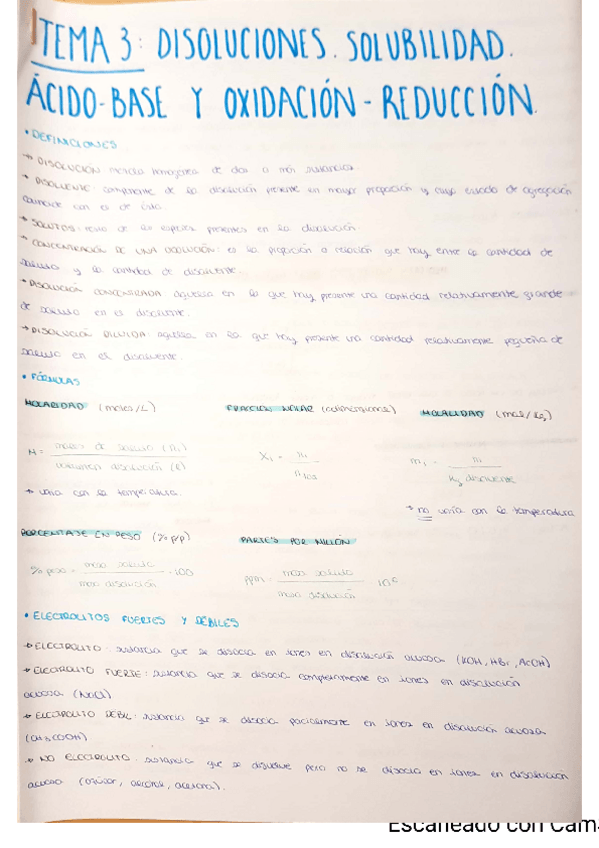 TEMA 3: DISOLUCIONES. SOLUBILIDAD.
ÁCIDO-BASE Y OXIDACIÓN-REDUCCIÓN.
• DEFINICIONES
→ DISOLUCIÓN mezcla homogénea de dos o más sustancias.
→ DISOLVENTE: componente de la disolución presente en mayor proporción y cuyo estado de agregación
coincide con el de ésta.
→ SOLUTOS: resto de las especies presentes en la disolución.
→ CONCENTRACIÓN DE UNA DISOLUCIÓN: es la proporción o relación que hay entre la cantidad de
soluto y la cantidad de disolvente.
→ DISOLUCIÓN CONCENTRADA aquella en la que hay presente una cantidad relativamente grande
de soluto en el disolvente.
→ DISOLUCIÓN DILUIDA: aquella en la que hay presente una cantidad relativamente pequeña de
soluto en el disolvente.
• FÓRMULAS
MOLARIDAD (moles/L) FRACCIÓN MOLAR (adimensional) MOLALIDAD (mol/kg)
M = moles de soluto (n₁) / volumen disolución (l)
X₁ = n₁ / n total
m₁ = n₁ / kg disolvente
→ varía con la temperatura.
→ no varía con la temperatura
PORCENTAJE EN PESO (% p/p) PARTES POR MILLÓN
% peso = masa soluto / masa disolución · 100
ppm = masa soluto / masa disolución 10⁶
• ELECTROLITOS FUERTES Y DÉBILES
→ ELECTROLITO: sustancia que se disocia en iones en disolución acuosa (KOH, HBr, AcOH)
→ ELECTROLITO FUERTE: sustancia que se disocia completamente en iones en disolución
acuosa (NaCl)
→ ELECTROLITO DÉBIL: sustancia que se disocia parcialmente en iones en disolución acuosa
(CH₃COOH)
→ NO ELECTROLITO: sustancia que se disuelve pero no se disocia en iones en disolución
acuosa (azúcar, alcohol, acetona).
Escaneado con Cam